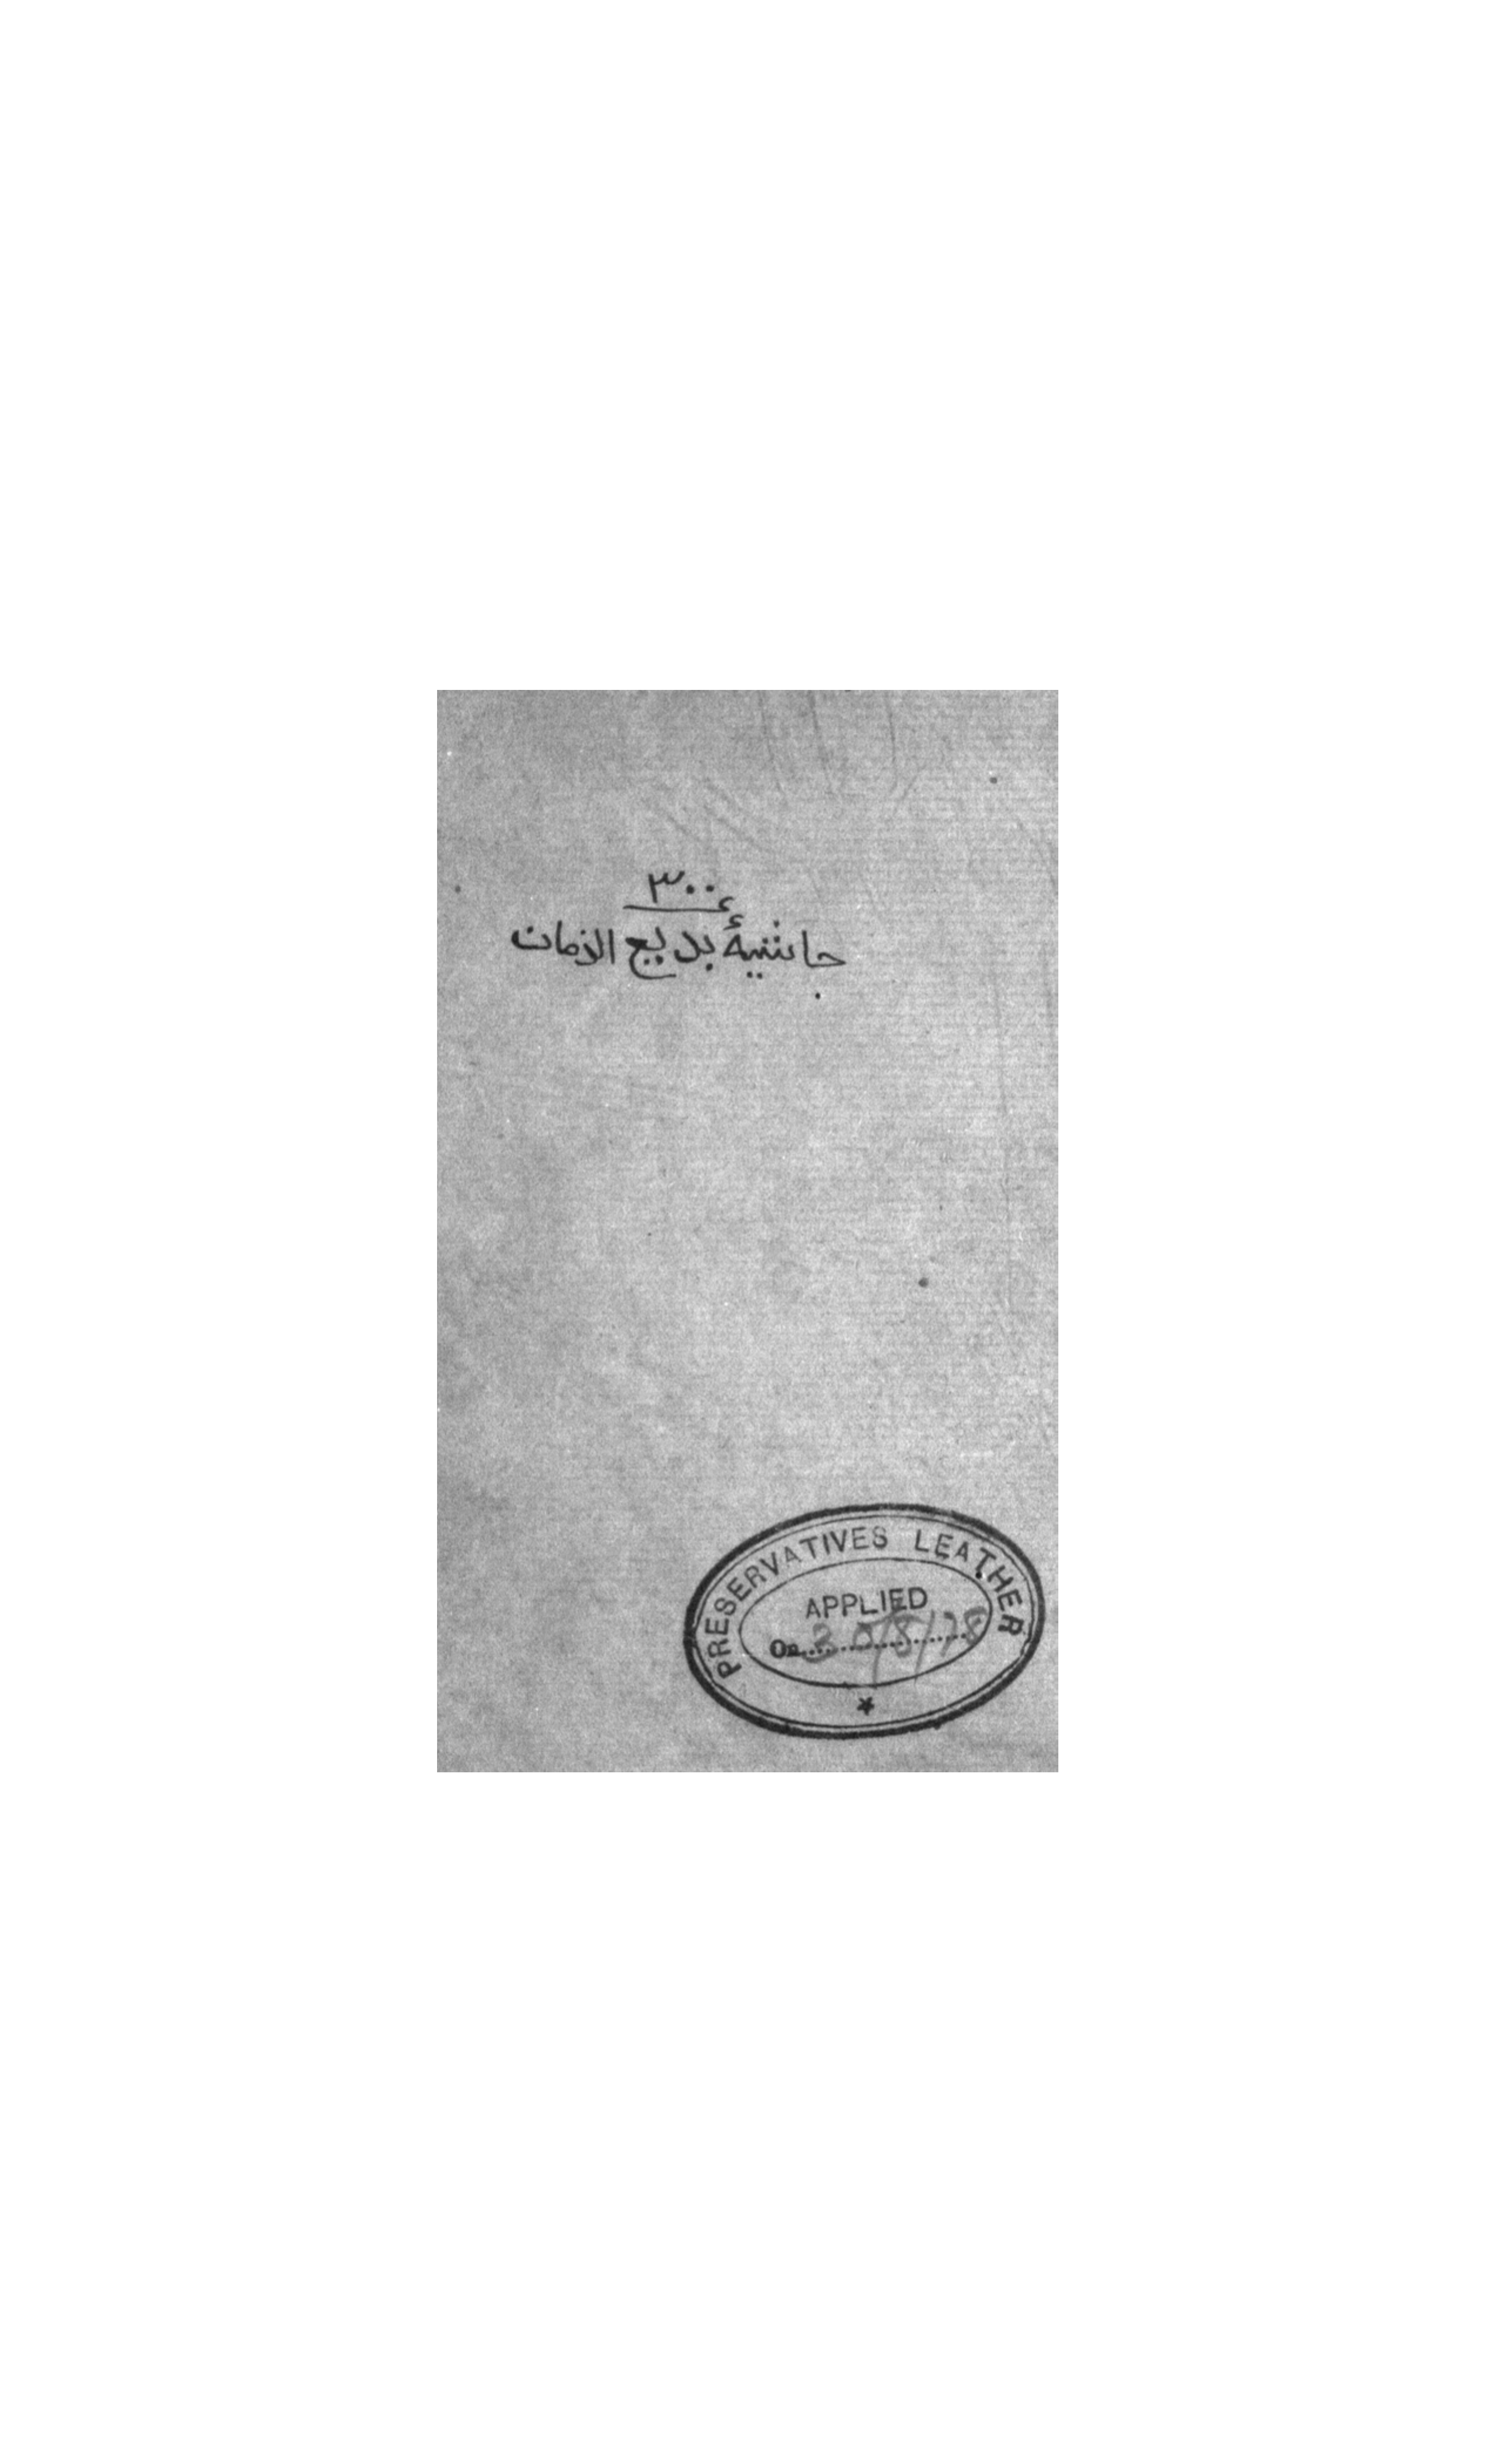 ٣٠٠ء
حاشیۂ بدیع الزمان
PRESERVATIVES LEATHER
APPLIED
On 30/8/78